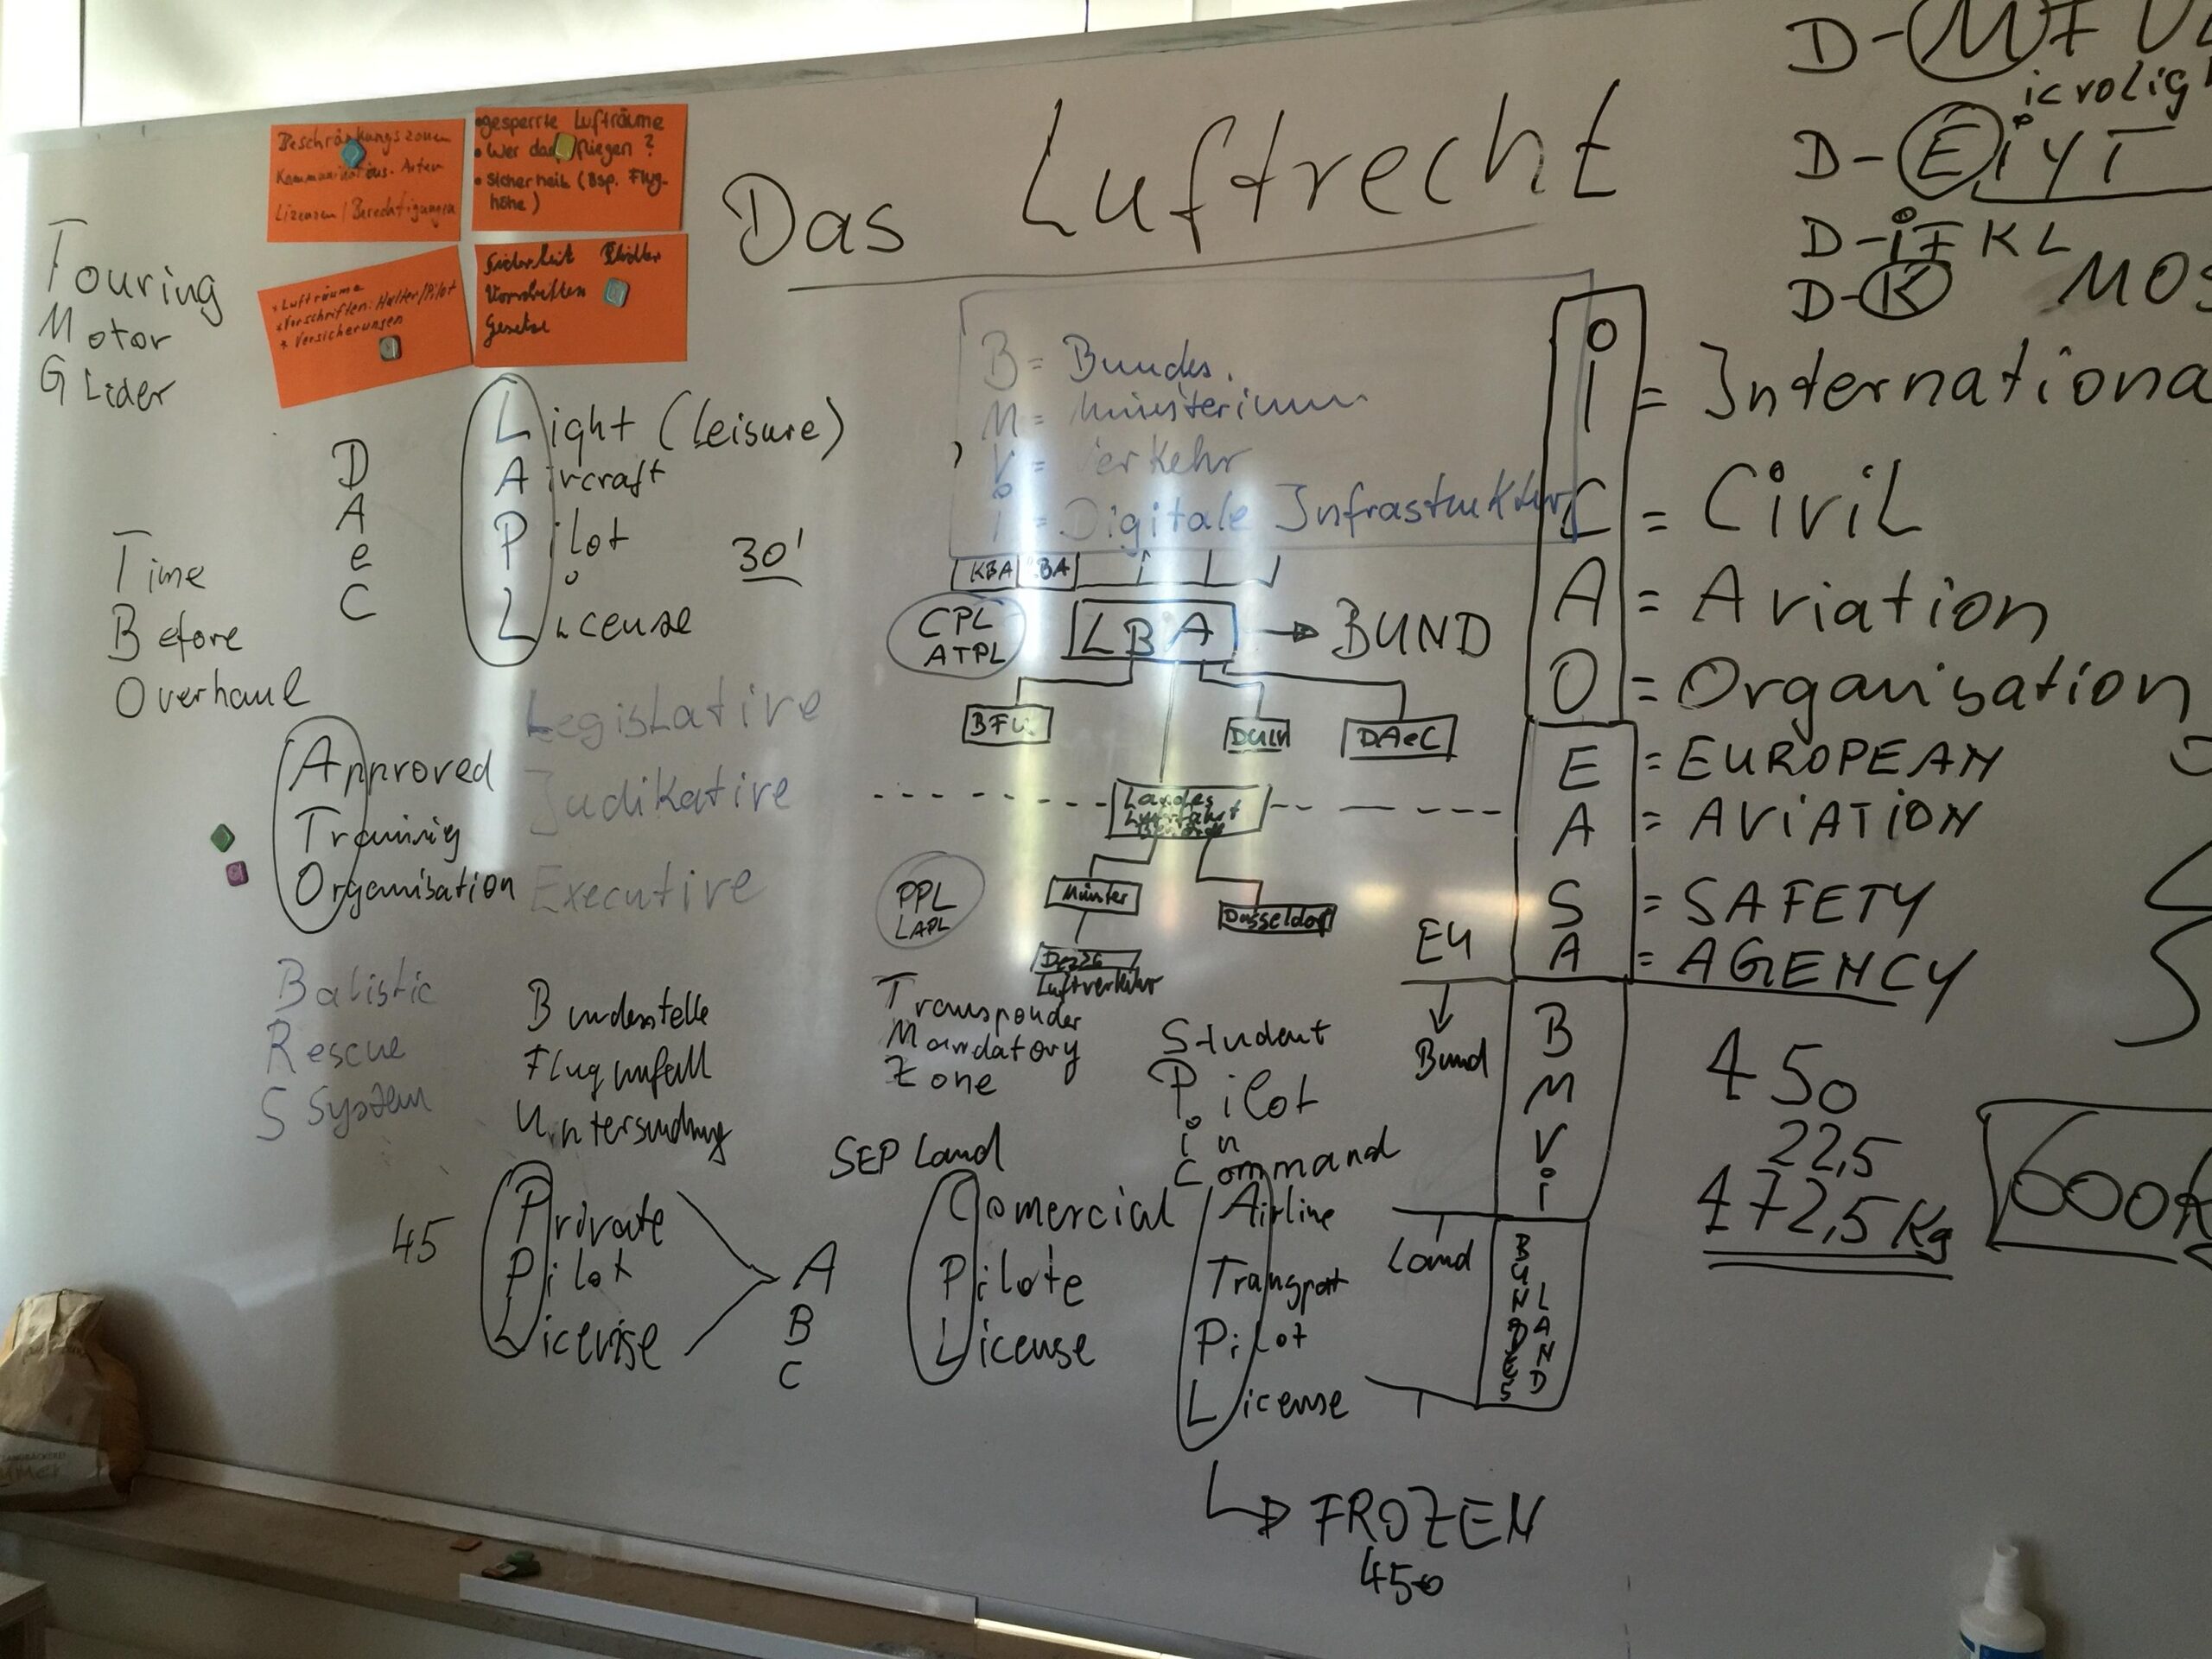 Das Luftrecht
Beschränkungszonen
Kommunikations-Arten
Lizenzen / Berechtigungen
• gesperrte Lufträume
• Wer darf fliegen ?
• Sicherheit (Bsp. Flug-
höhe)
* Lufträume
* Vorschriften: Halter/Pilot
* Versicherungen
Vorschriften
Gesetze
Touring
Motor
Glider
D
A
e
C
Light (Leisure)
Aircraft
Pilot
License
30'
Time
Before
Overhaul
Approved
Training
Organisation
Legislative
Judikative
Executive
Balistic
Rescue
S System
Bundesstelle
Flugunfall
Untersuchung
45
Private
Pilot
License
A
B
C
B = Bundes.
M = ministerium
V = Verkehr
i = Digitale Infrastruktur
KBA
CPL
ATPL
LBA → BUND
BFU
DULV
DAeC
Landes
Luftfahrt
PPL
LAPL
Münster
Düsseldorf
Dez 26
Luftverkehr
Transponder
Mandatory
Zone
Student
Pilot
in
Command
SEP Land
Comercial
Pilote
License
Airline
Transport
Pilot
License
FROZEN
450
D-MFU
icrolig
D-EiYT
D-iFKL
D-K MOS
I = Internationa
C = Civil
A = Aviation
O = Organisation
E = EUROPEAN
A = AViATiON
S = SAFETY
A = AGENCY
EU
Bund
B
M
V
i
Land
BUNDES
LAND
450
22,5
472,5 Kg
600k